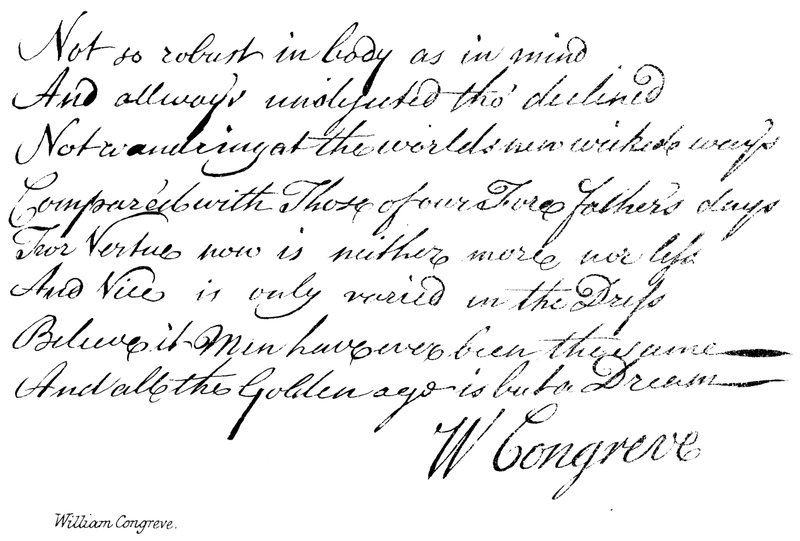 Not so robust in body as in mind
And allways undejected tho' declined
Not wandring at the worlds new wicked ways
Compar'd with Those of our Fore father's days
For Vertue now is neither more nor less
And Vice is only varied in the Dress
Believe it Men have ever been the same
And all the Golden age is but a Dream
W Congreve
William Congreve.